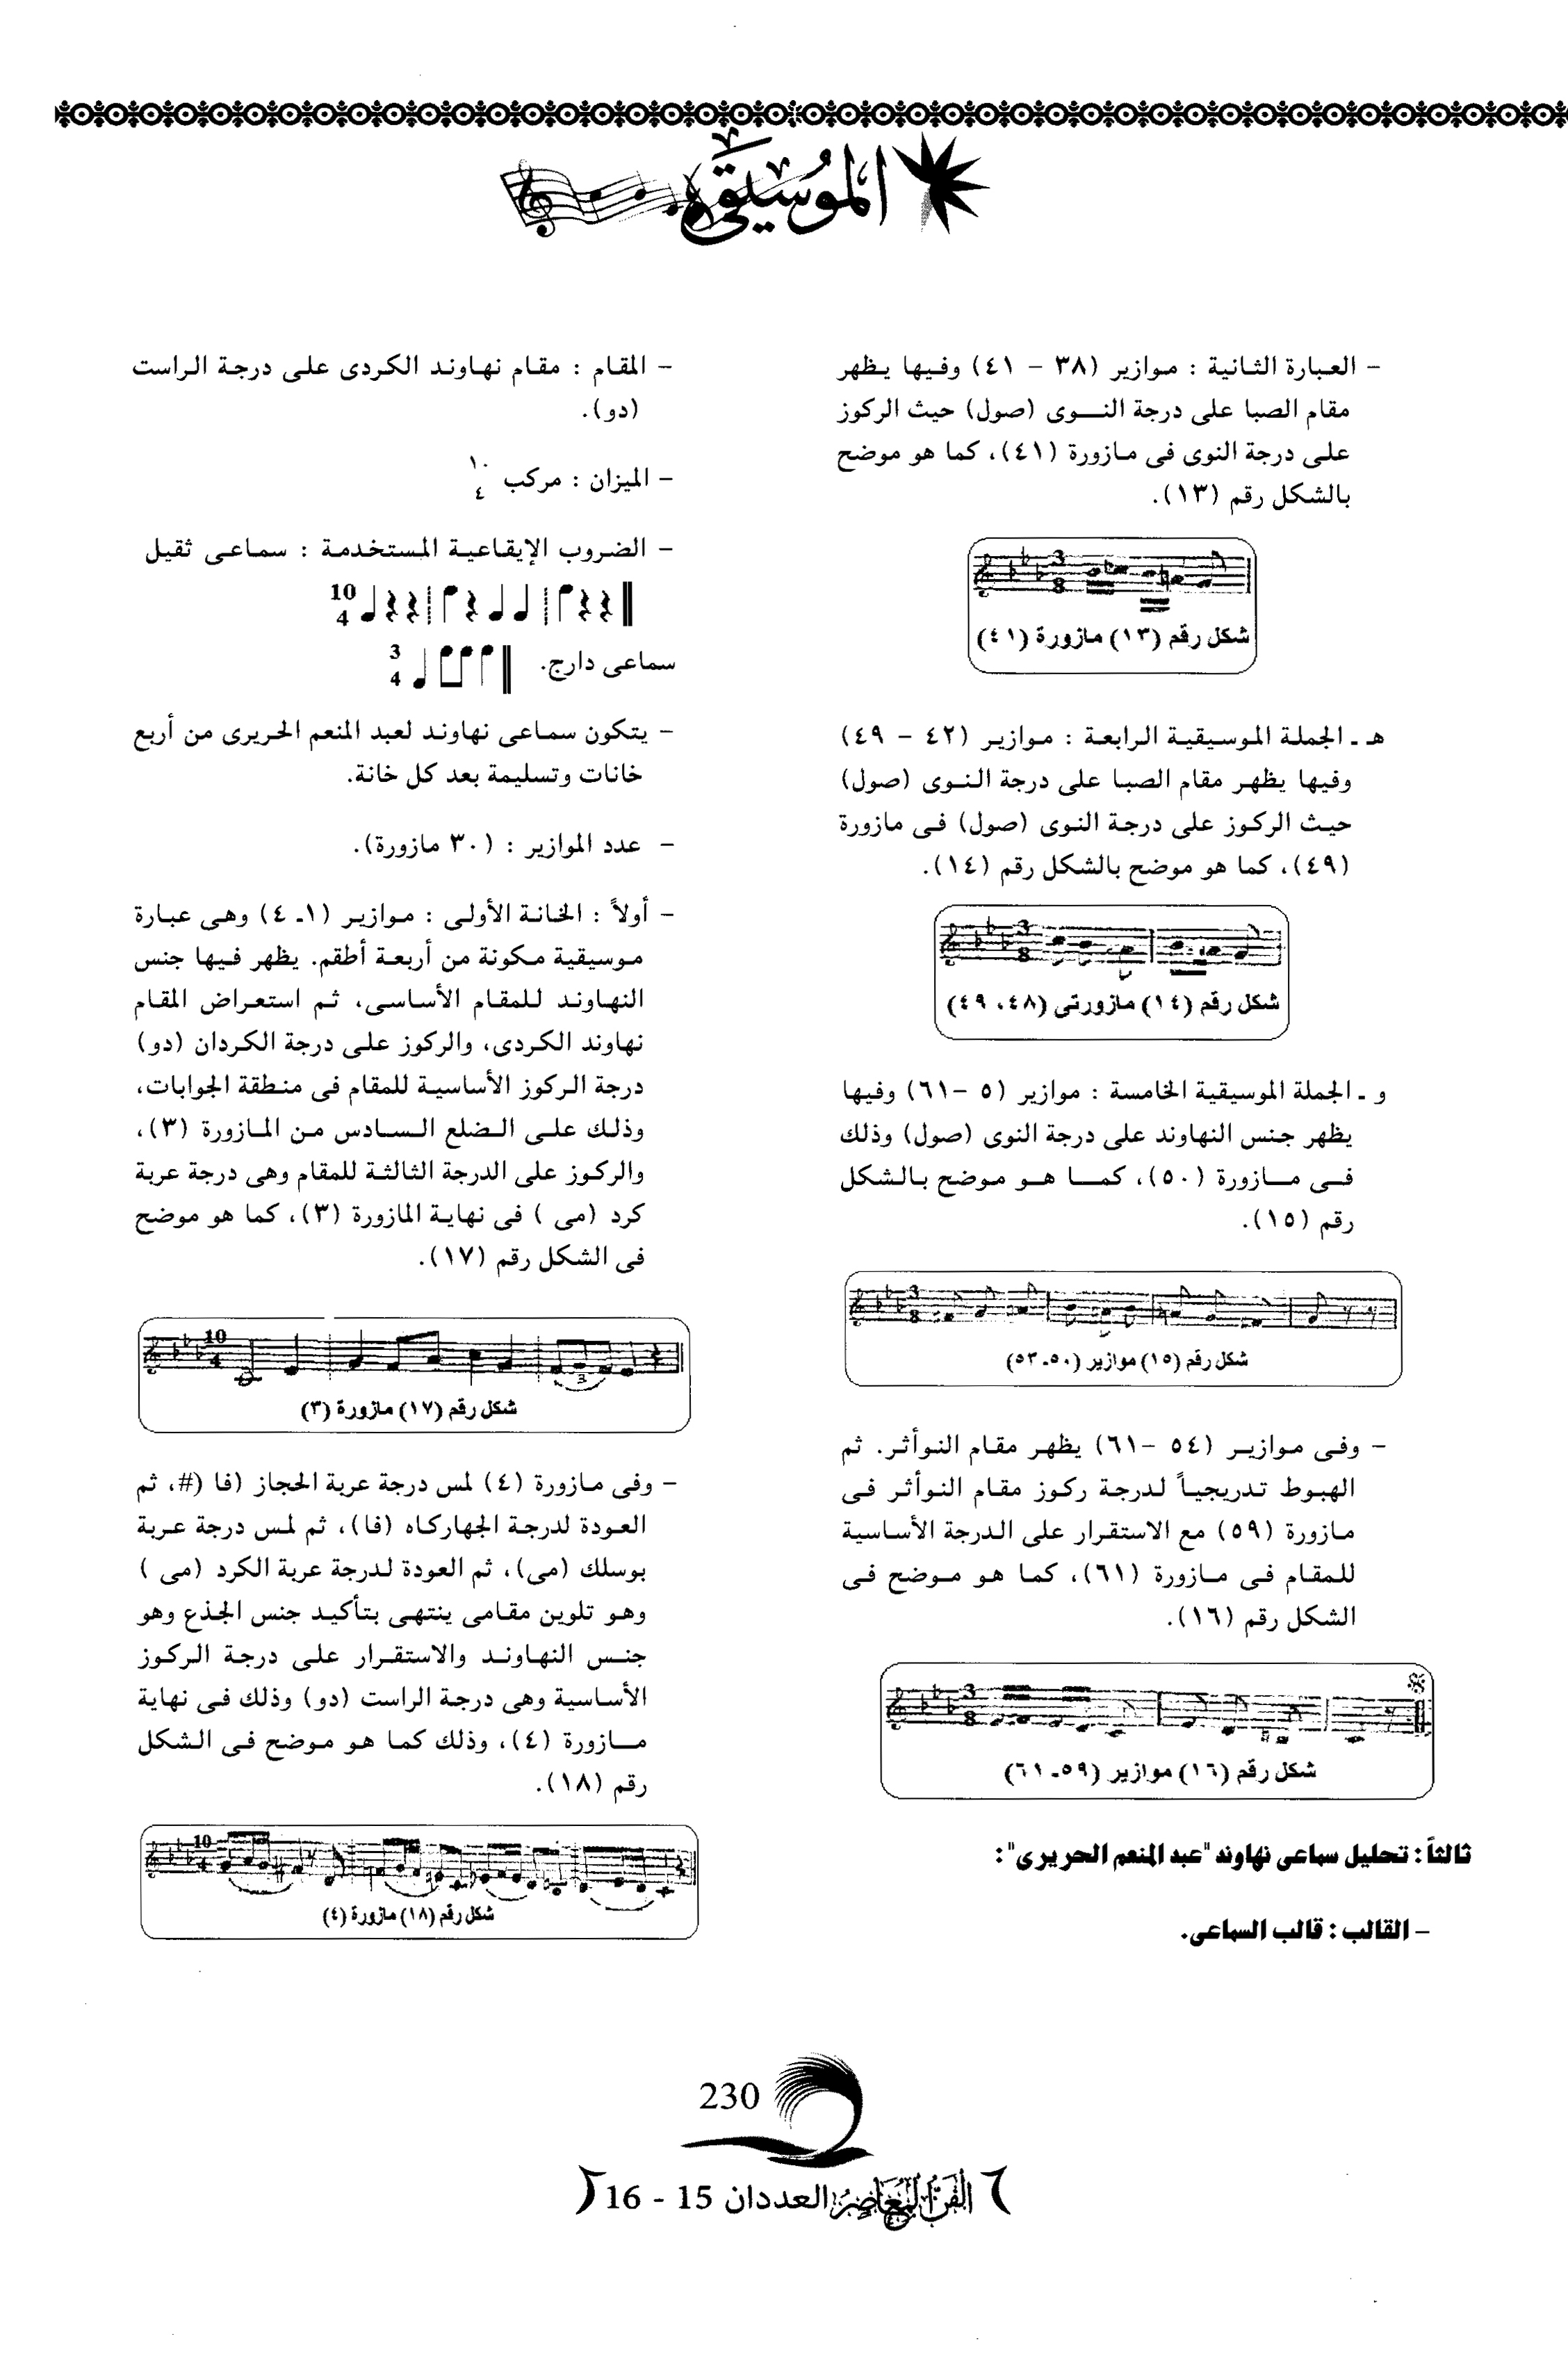 الموسيقى
- العبارة الثانية : موازير (٣٨ - ٤١) وفيها يظهر
مقام الصبا على درجة النوى (صول) حيث الركوز
على درجة النوى فى مازورة (٤١)، كما هو موضح
بالشكل رقم (١٣).
3
8
شكل رقم (١٣) مازورة (٤١)
هـ ـ الجملة الموسيقية الرابعة : موازير (٤٢ - ٤٩)
وفيها يظهر مقام الصبا على درجة النوى (صول)
حيث الركوز على درجة النوى (صول) فى مازورة
(٤٩)، كما هو موضح بالشكل رقم (١٤).
3
8
شكل رقم (١٤) مازورتى (٤٨، ٤٩)
و ـ الجملة الموسيقية الخامسة : موازير (٥ -٦١) وفيها
يظهر جنس النهاوند على درجة النوى (صول) وذلك
فى مازورة (٥٠)، كما هو موضح بالشكل
رقم (١٥).
3
8
شكل رقم (١٥) موازير (٥٠ـ ٥٣)
- وفى موازير (٥٤ -٦١) يظهر مقام النوأثر. ثم
الهبوط تدريجياً لدرجة ركوز مقام النوأثر فى
مازورة (٥٩) مع الاستقرار على الدرجة الأساسية
للمقام فى مازورة (٦١)، كما هو موضح فى
الشكل رقم (١٦).
3
8
شكل رقم (١٦) موازير (٥٩ـ ٦١)
ثالثاً : تحليل سماعى نهاوند "عبد المنعم الحريرى" :
- القالب : قالب السماعى.
- المقام : مقام نهاوند الكردى على درجة الراست
(دو).
- الميزان : مركب ١٠
٤
- الضروب الإيقاعية المستخدمة : سماعى ثقيل
10
4
سماعى دارج. 3
4
- يتكون سماعى نهاوند لعبد المنعم الحريرى من أربع
خانات وتسليمة بعد كل خانة.
- عدد الموازير : (٣٠ مازورة).
- أولاً : الخانة الأولى : موازير (١ـ ٤) وهى عبارة
موسيقية مكونة من أربعة أطقم. يظهر فيها جنس
النهاوند للمقام الأساسى، ثم استعراض المقام
نهاوند الكردى، والركوز على درجة الكردان (دو)
درجة الركوز الأساسية للمقام فى منطقة الجوابات،
وذلك على الضلع السادس من المازورة (٣)،
والركوز على الدرجة الثالثة للمقام وهى درجة عربة
كرد (مى ) فى نهاية المازورة (٣)، كما هو موضح
فى الشكل رقم (١٧).
10
4
3
شكل رقم (١٧) مازورة (٣)
- وفى مازورة (٤) لمس درجة عربة الحجاز (فا (#، ثم
العودة لدرجة الجهاركاه (فا)، ثم لمس درجة عربة
بوسلك (مى)، ثم العودة لدرجة عربة الكرد (مى )
وهو تلوين مقامى ينتهى بتأكيد جنس الجذع وهو
جنس النهاوند والاستقرار على درجة الركوز
الأساسية وهى درجة الراست (دو) وذلك فى نهاية
مازورة (٤)، وذلك كما هو موضح فى الشكل
رقم (١٨).
10
4
شكل رقم (١٨) مازورة (٤)
230
الفن المعاصر العددان 15 - 16